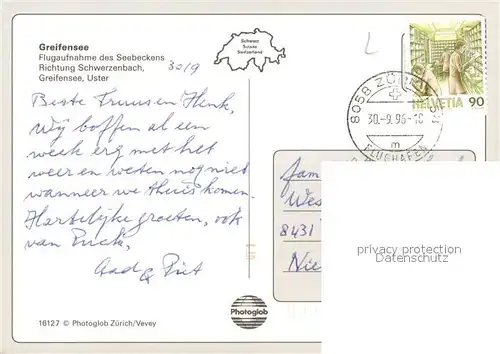 Greifensee
Flugaufnahme des Seebeckens
Richtung Schwerzenbach,
Greifensee, Uster
30/9
Schweiz
Suisse
Switzerland
HELVETIA 90
8058 ZÜRICH
30.-9.96-10
m
FLUGHAFEN
Beste Truus en Henk,
Wij boffen al een
week erg met het
weer en weten nog niet
wanneer we thuis komen.
Hartelijke groeten, ook
van Puck,
Aad & Riet
Fam
Wes
8431
Nie
privacy protection
Photoglob
16127 © Photoglob Zürich/Vevey